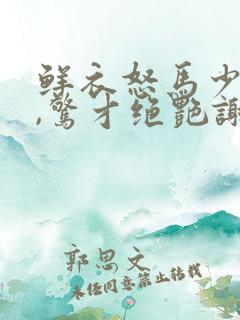 鲜衣怒马少
,惊才绝艳谢
郭思文
未经同意禁止转载